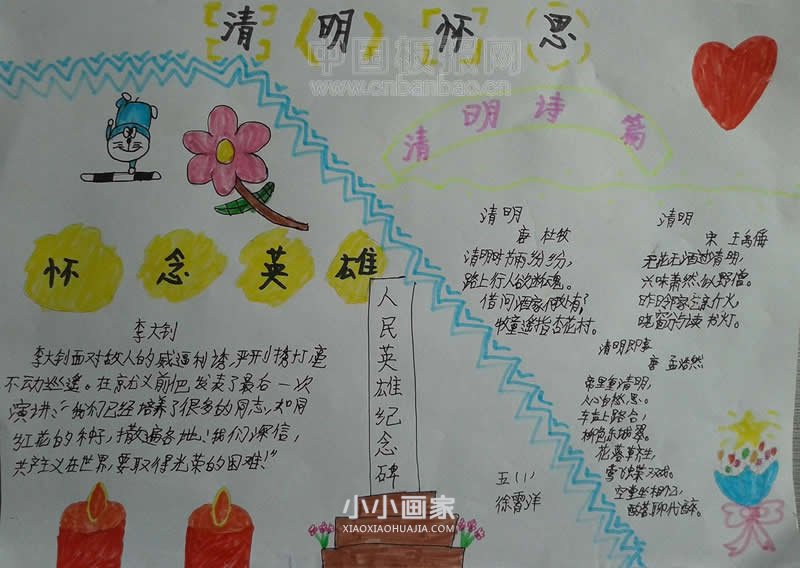 清明怀思
中国板报网
www.cnbanbao.cn
清明诗篇
怀念英雄
李大钊
李大钊面对敌人的威逼利诱,严刑拷打
不动摇。在京就义前他发表了最后一次
演讲:"我们已经培养了很多的同志,如同
红花的种子,撒遍各地!我们深信,
共产主义在世界,要取得光荣的困难!"
人民英雄纪念碑
清明
唐 杜牧
清明时节雨纷纷,
路上行人欲断魂。
借问酒家何处有,
牧童遥指杏花村。
清明
宋 王禹偁
无花无酒过清明,
兴味萧然似野僧。
昨日邻家乞新火,
晓窗分与读书灯。
清明即事
唐 孟浩然
帝里重清明,
人心自愁思。
车声上路合,
柳色东城翠。
花落草齐生,
莺飞蝶双戏。
空堂坐相忆,
酌茗聊代醉。
五(1)
徐雪洋
小小画家
XIAOXIAOHUAJIA.COM